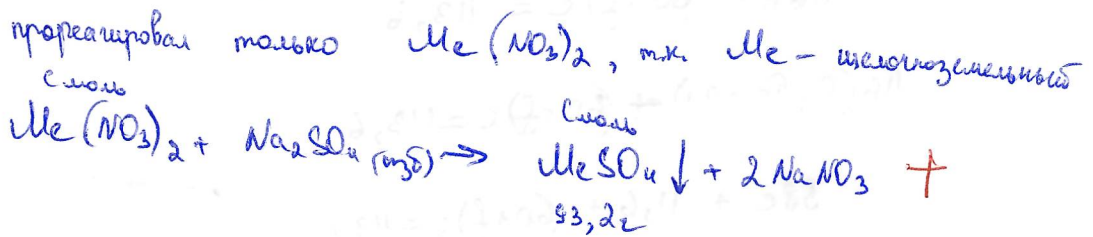 прореагировал только Me(NO₃)₂, т.к. Me – щелочноземельный
с моль с моль
Me(NO₃)₂ + Na₂SO₄ (изб) → MeSO₄↓ + 2NaNO₃ +
93,2г